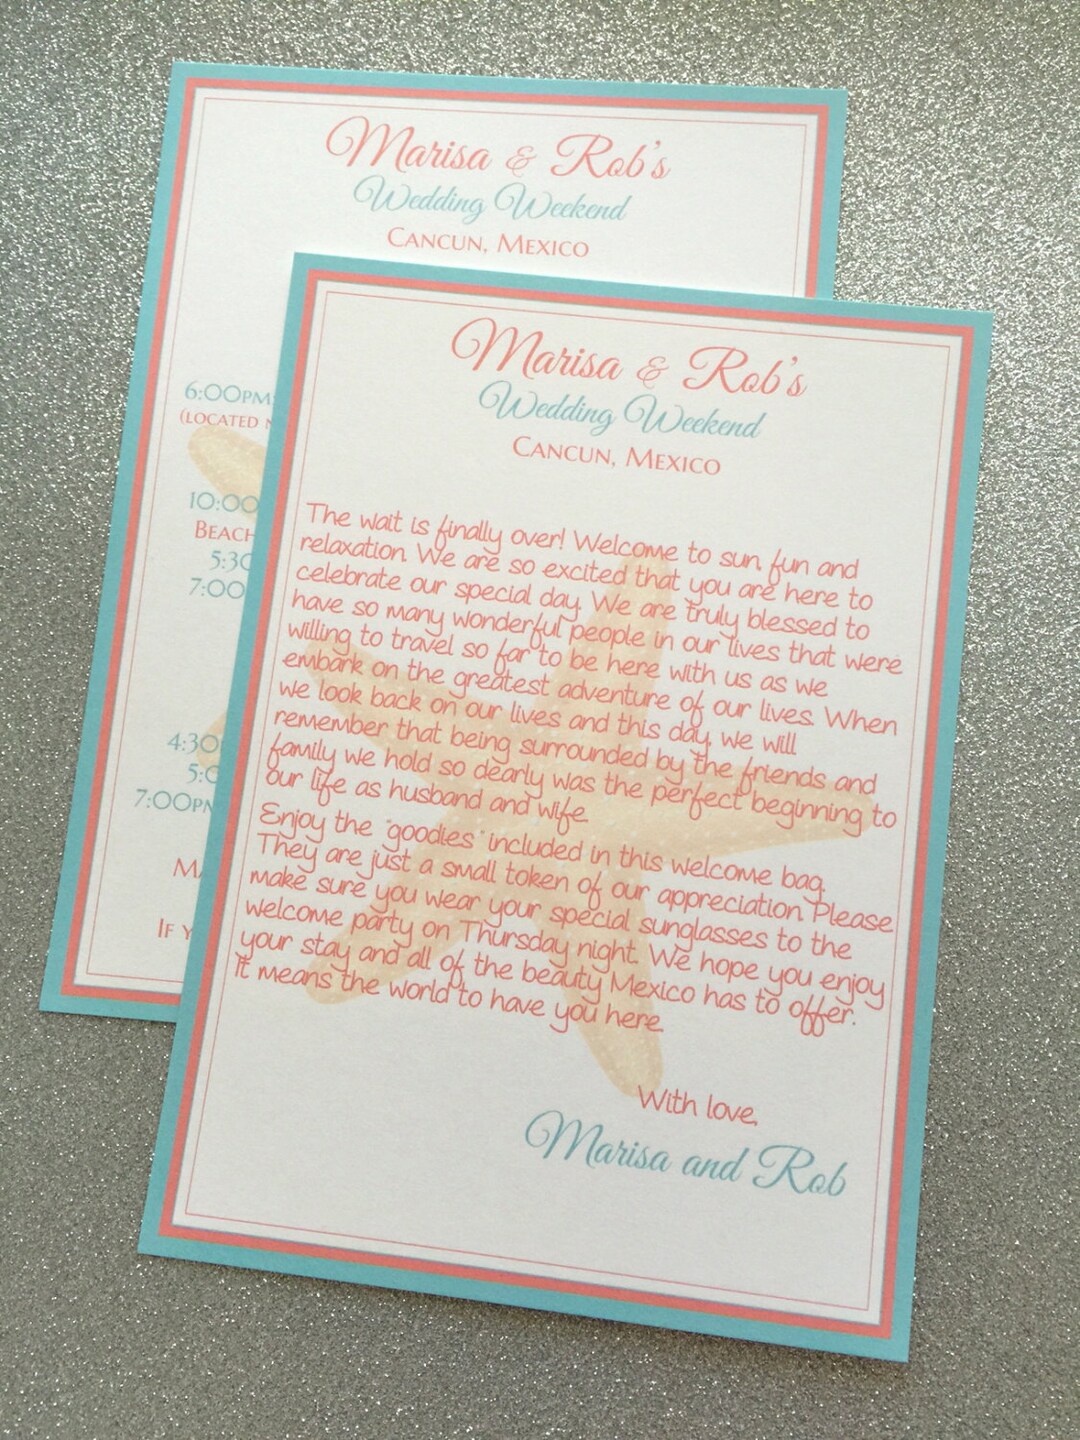 Marisa & Rob's
Wedding Weekend
Cancun, Mexico
6:00pm
(located
10:00
Beach
5:30
7:00
4:30
5:0
7:00pm
If y
Marisa & Rob's
Wedding Weekend
Cancun, Mexico
The wait is finally over! Welcome to sun, fun and
relaxation. We are so excited that you are here to
celebrate our special day. We are truly blessed to
have so many wonderful people in our lives that were
willing to travel so far to be here with us as we
embark on the greatest adventure of our lives. When
we look back on our lives and this day, we will
remember that being surrounded by the friends and
family we hold so dearly was the perfect beginning to
our life as husband and wife.
Enjoy the "goodies" included in this welcome bag.
They are just a small token of our appreciation. Please
make sure you wear your special sunglasses to the
welcome party on Thursday night. We hope you enjoy
your stay and all of the beauty Mexico has to offer.
It means the world to have you here.
With love,
Marisa and Rob